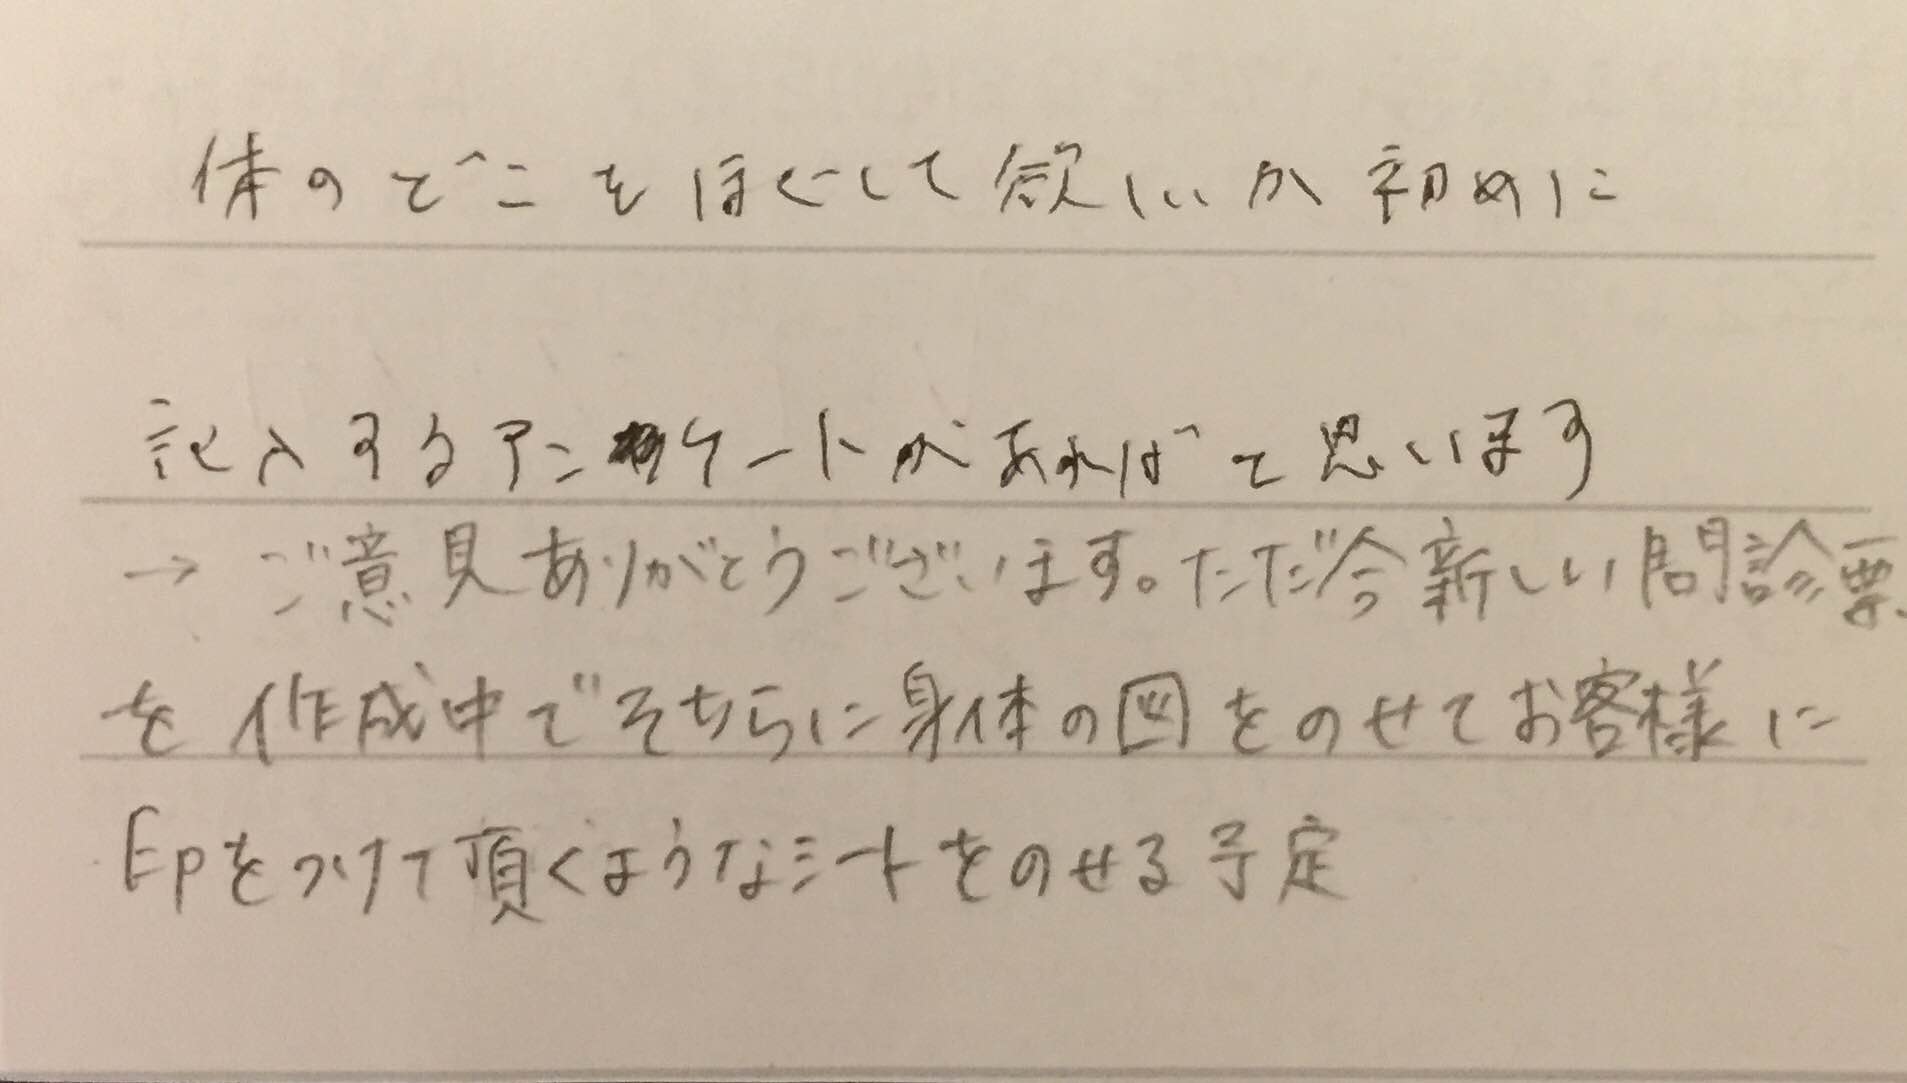 体のどこをほぐして欲しいか初めに
記入するアンケートがあればと思います
→ご意見ありがとうございます。ただ今新しい問診票
を作成中でそちらに身体の図をのせてお客様に
印をつけて頂くようなシートをのせる予定